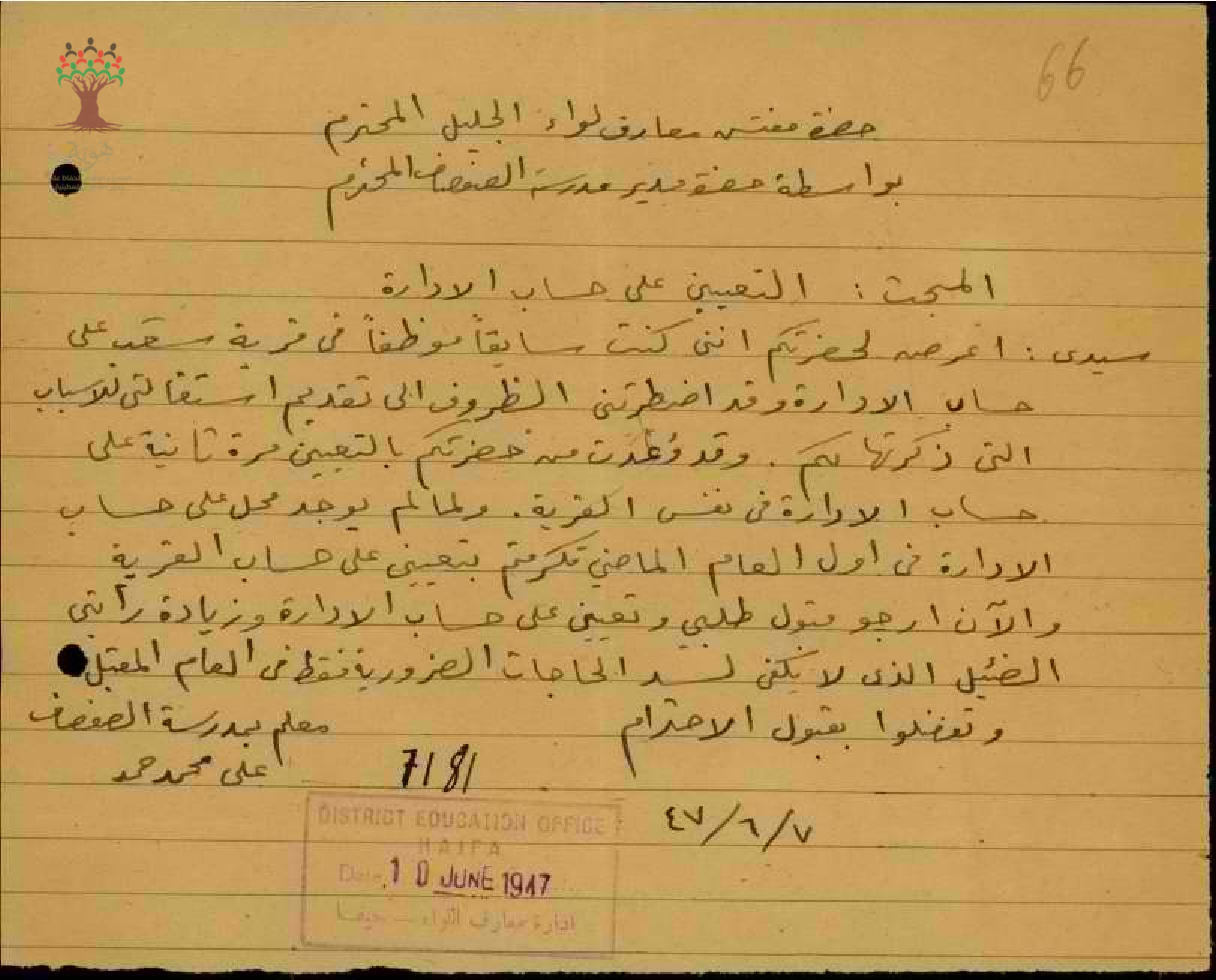 66
حضرة مفتش معارف لواء الجليل المحترم
بواسطة حضرة مدير مدرسة الصفصاف المحترم
المبحث : التعيين على حساب الادارة
سيدى : اعرض لحضرتكم اننى كنت سابقاً موظفاً فى قرية سعسع على
حساب الادارة وقد اضطرتنى الظروف الى تقديم استقالتى للاسباب
التى ذكرتها لكم . وقد وُعدت من حضرتكم بالتعيين مرة ثانية على
حساب الادارة فى نفس القرية . ولما لم يوجد محل على حساب
الادارة فى اول العام الماضي تكرمتم بتعييني على حساب القرية
والآن ارجو قبول طلبي وتعييني على حساب الادارة وزيادة راتبي
الضئيل الذى لا يكفى لسد الحاجات الضرورية فقط فى العام المقبل
وتفضلوا بقبول الاحترام
معلم بمدرسة الصفصاف
على محمد حمد
7181
٤٧/٦/٧
DISTRICT EDUCATION OFFICE
HAIFA
Date 10 JUNE 1947
ادارة معارف اللواء – حيفا